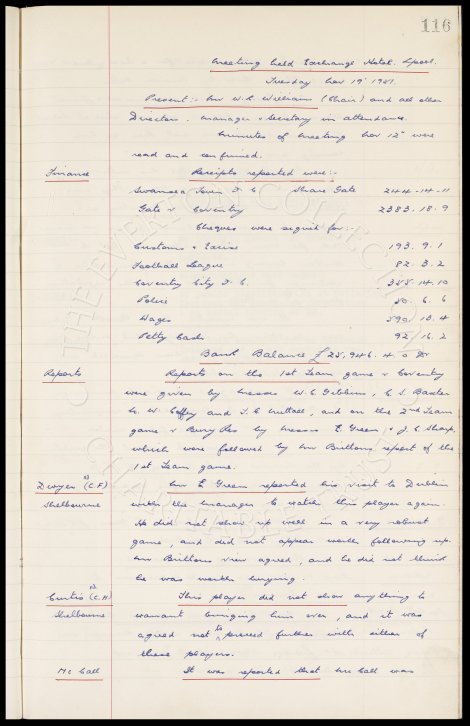 116
Meeting held Exchange Hotel. Lpool.
Tuesday Nov 19th 1951.
Present:- Mr W.R. Williams (Chair) and all other
Directors. Manager & Secretary in attendance.
Minutes of Meeting Nov 12th were
read and confirmed.
Finance Receipts reported were:-
Swansea Town F. C. Share Gate 244-14-11
Gate v Coventry 2383.18.9
Cheques were signed for:-
Customs & Excise 193.9.1
Football League 82.3.2
Coventry City F. C. 355-14.10
Police 50.6.6
Wages 590.13.4
Petty Cash 92.16.2
Bank Balance £25,946.4.0 Dr
Reports Reports on the 1st Team game v Coventry
were given by Messrs W. C. Gibbins, C. S. Baxter
W. Coffey and T. C. Nuttall, and on the 2nd Team
game v Bury Res by Messrs E. Green & J. C. Sharp,
which were followed by Mr Brittons report of the
1st Team game.
Dwyer (C.F) Mr E Green reported his visit to Dublin
Shelbourne with the manager to watch this player again.
He did not show up well in a very robust
game, and did not appear worth following up.
Mr Brittons view agreed, and he did not think
he was worth buying.
Curtis (C.H) This player did not show anything to
Shelbourne warrant bringing him over, and it was
agreed not to proceed further with either of
these players.
McCall It was reported that McCall was
THE EVERTON COLLECTION
CHARITABLE TRUST